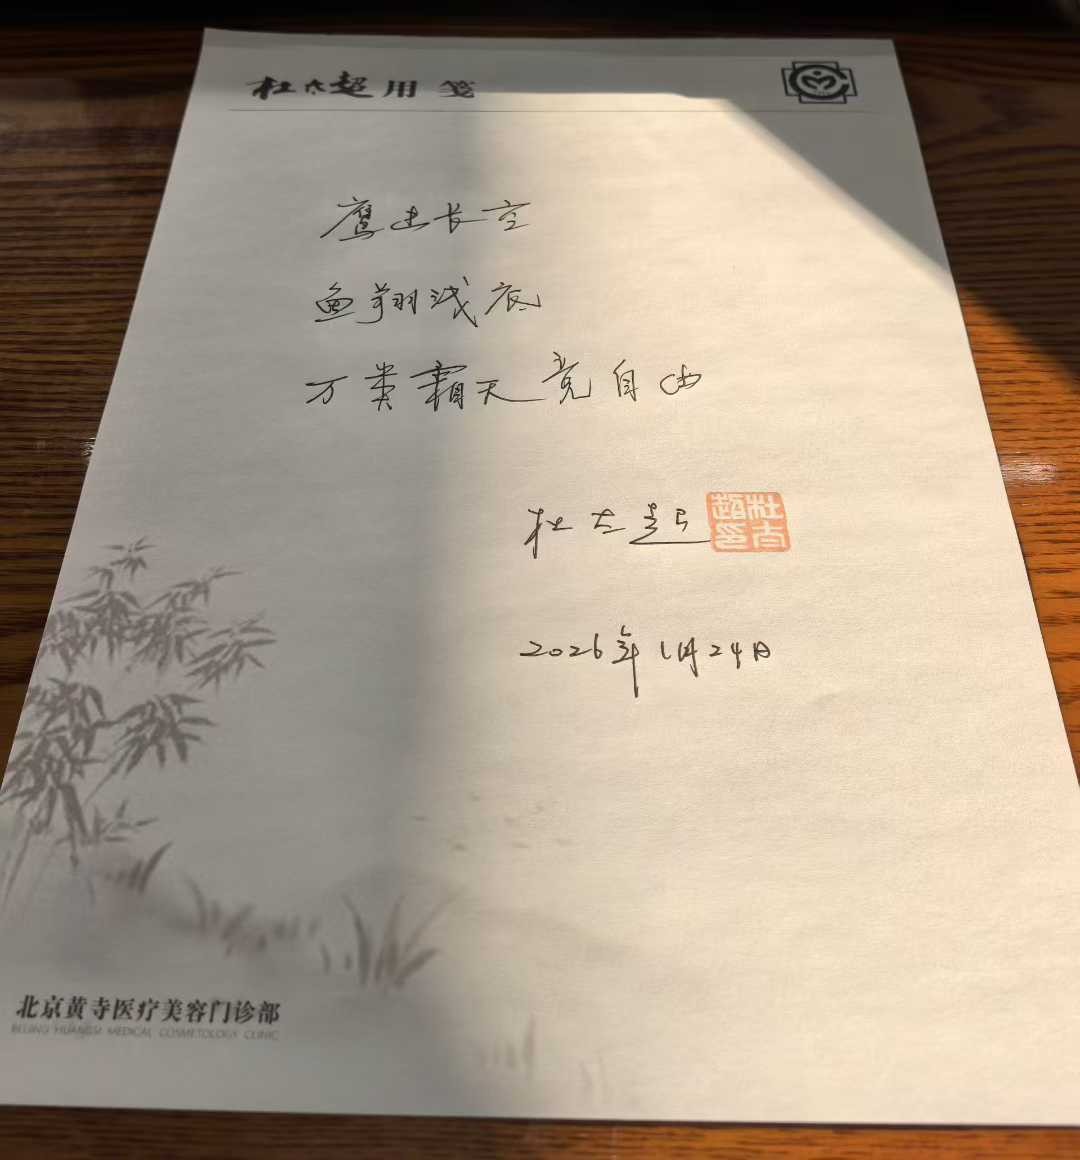 杜太超用笺
鹰击长空
鱼翔浅底
万类霜天竞自由
杜太超
杜太超印
2026年1月24日
北京黄寺医疗美容门诊部
BEIJING HUANGSI MEDICAL COSMETOLOGY CLINIC